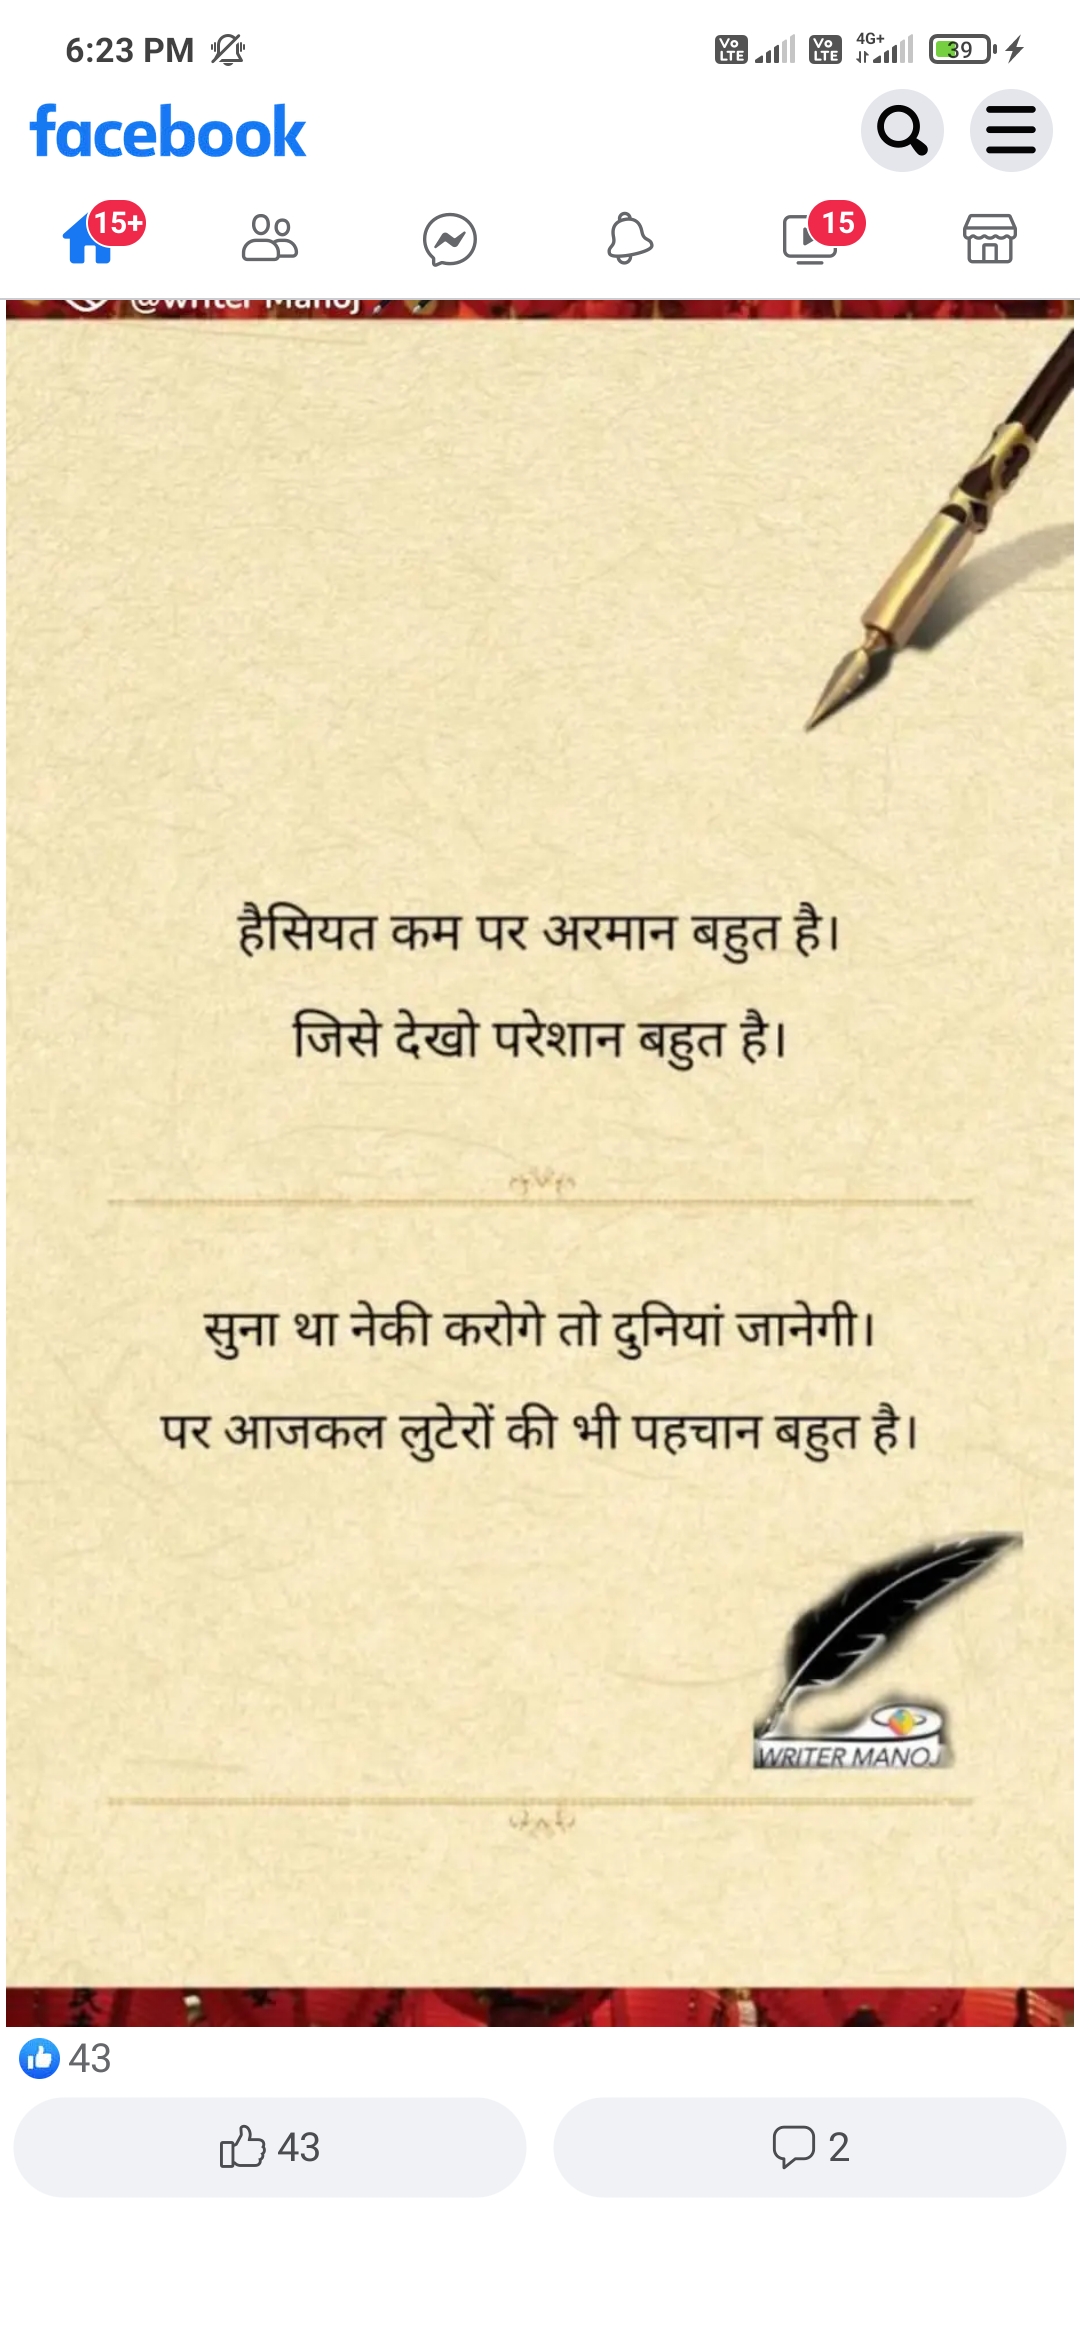 6:23 PM
Vo LTE Vo LTE 4G+ 39
facebook
15+ 15
@writer Manoj
हैसियत कम पर अरमान बहुत है।
जिसे देखो परेशान बहुत है।
सुना था नेकी करोगे तो दुनियां जानेगी।
पर आजकल लुटेरों की भी पहचान बहुत है।
WRITER MANOJ
43
43 2